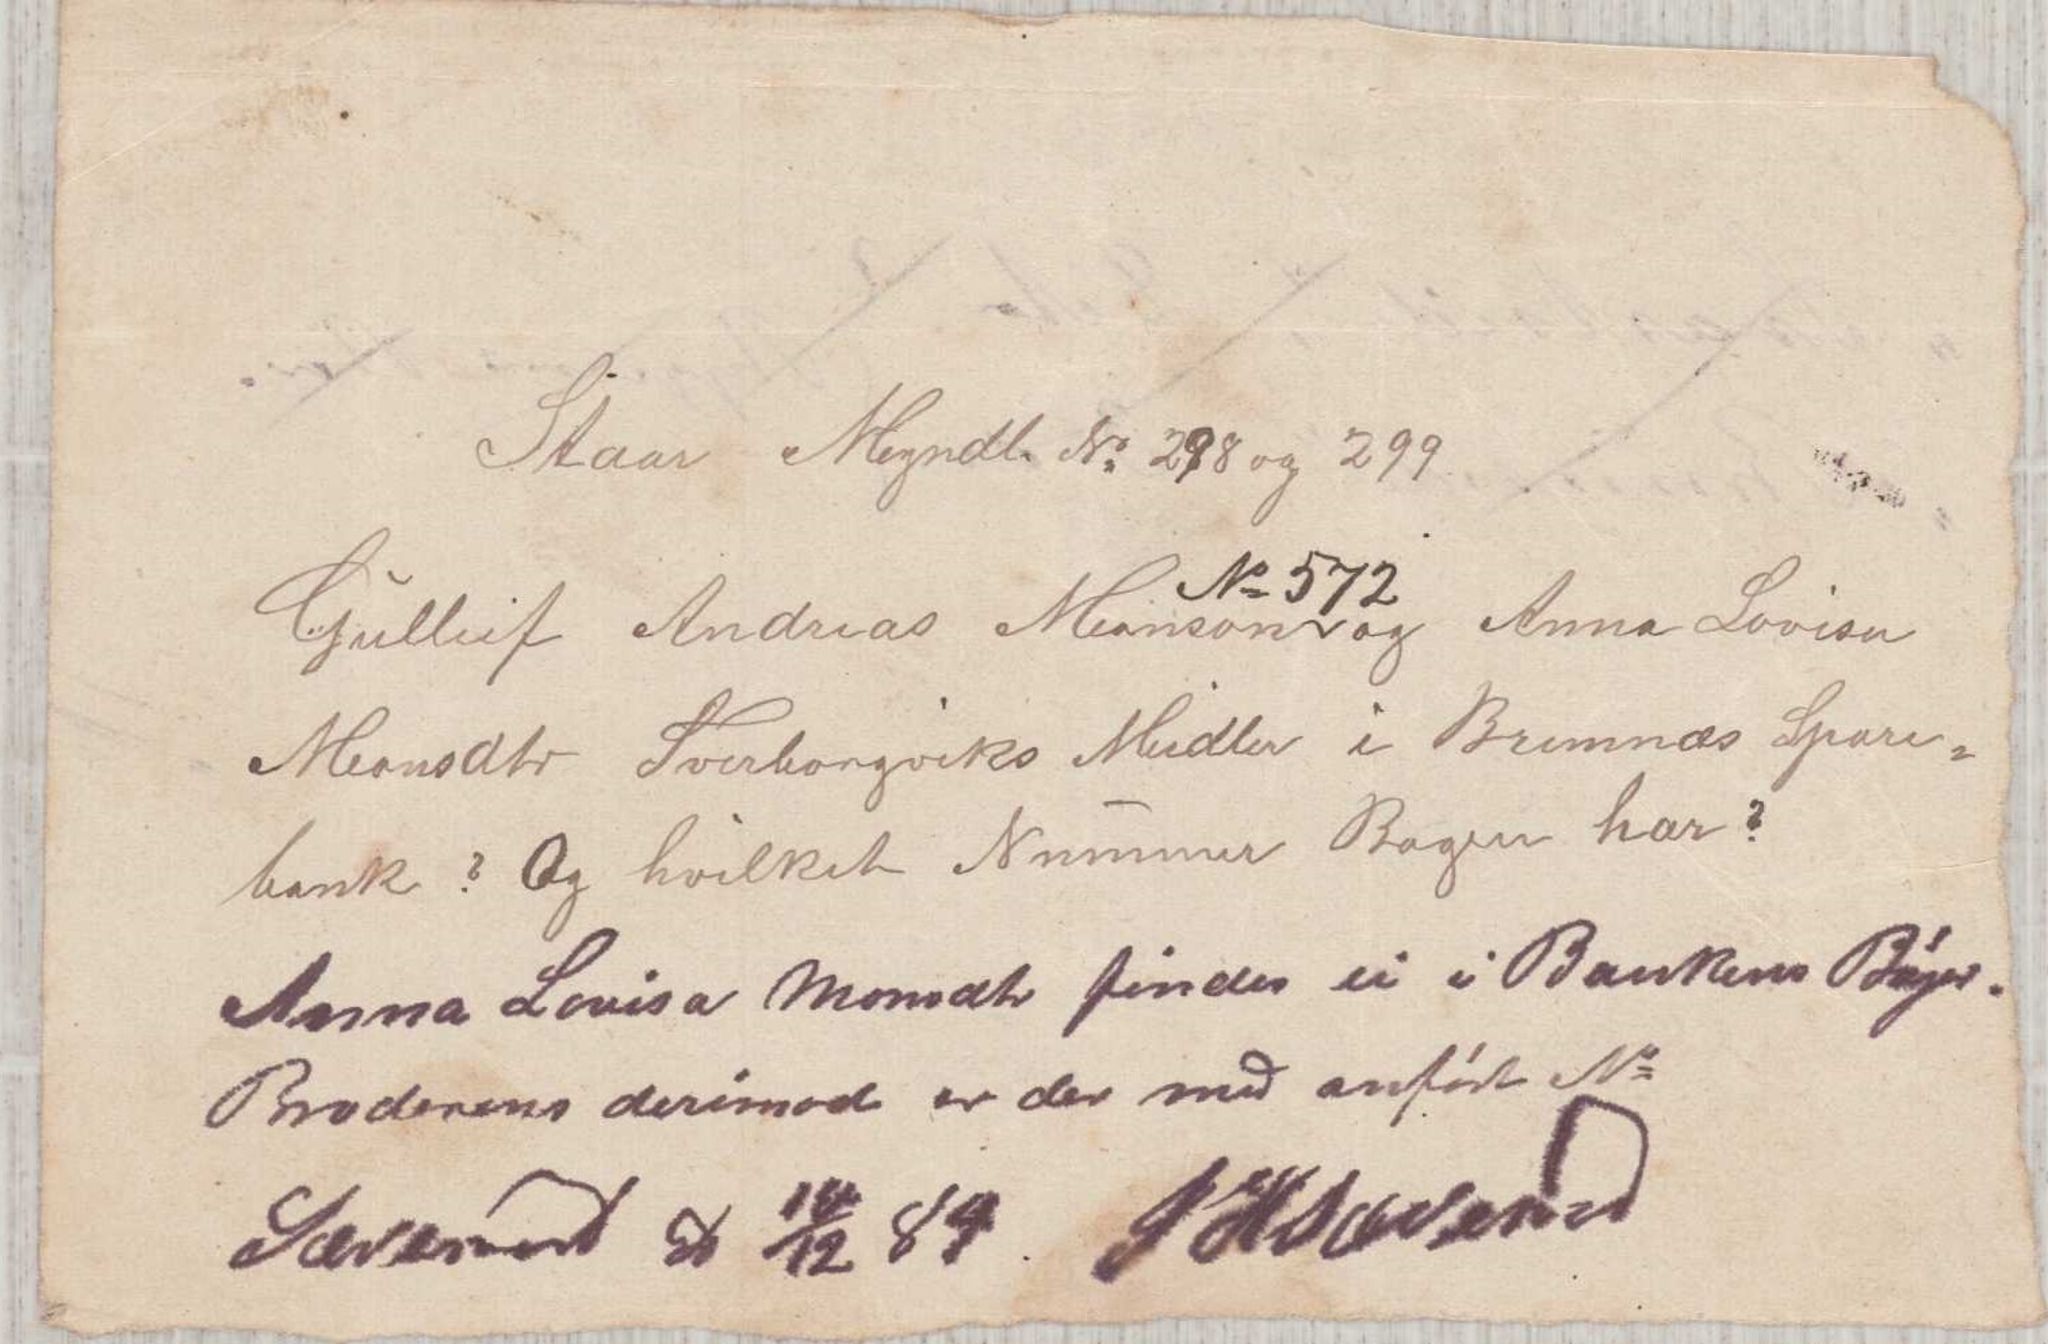 Staar Myndl. No. 298 og 299
No 572
Gulleif Andreas Monson og Anna Lovisa
Monsdtr Tverborgviks Midler i Bremnæs Spare-
bank? Og hvilket Nummer Bogen har?
Anna Lovisa Monsdtr findes ei i Bankens Bøger.
Broderens derimod er der med anført No
Sæverud d 14/12 84. Sæverud